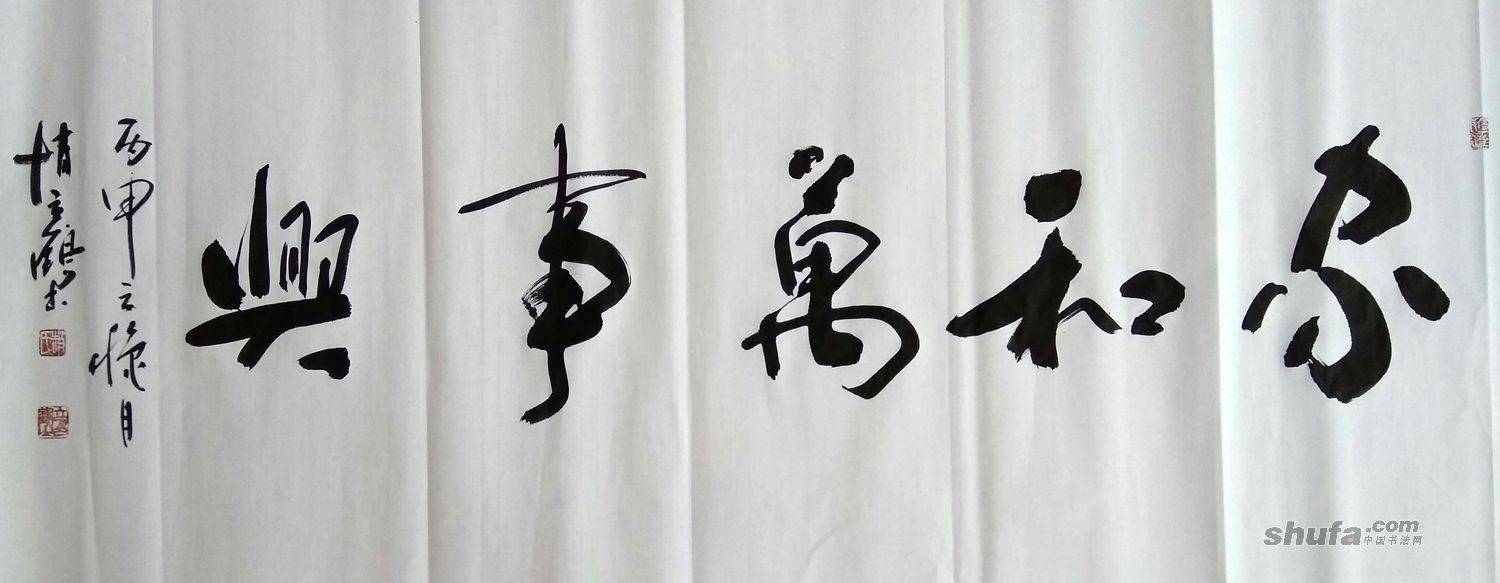 家和萬事興
丙申之穐月
shufa.com
中国书法网